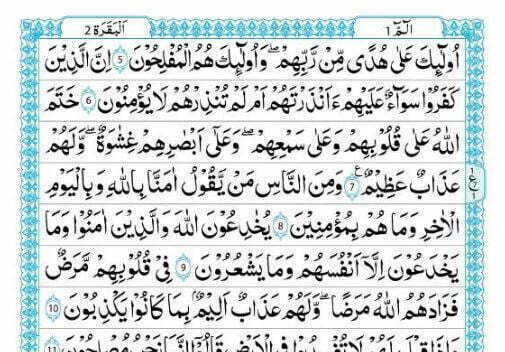 الٓمّٓ ١ اَلْبَقَرَة ٢
اُولٰٓئِكَ عَلٰى هُدًى مِّنْ رَّبِّهِمْ ۖ وَاُولٰٓئِكَ هُمُ الْمُفْلِحُوْنَ 5 اِنَّ الَّذِيْنَ
كَفَرُوْا سَوَآءٌ عَلَيْهِمْ ءَاَنْذَرْتَهُمْ اَمْ لَمْ تُنْذِرْهُمْ لَا يُؤْمِنُوْنَ 6 خَتَمَ
اللهُ عَلٰى قُلُوْبِهِمْ وَعَلٰى سَمْعِهِمْ ۖ وَعَلٰٓى اَبْصٰرِهِمْ غِشٰوَةٌ ۖ وَّلَهُمْ
عَذَابٌ عَظِيْمٌ 7 وَمِنَ النَّاسِ مَنْ يَّقُوْلُ اٰمَنَّا بِاللهِ وَبِالْيَوْمِ
الْاٰخِرِ وَمَا هُمْ بِمُؤْمِنِيْنَ 8 يُخٰدِعُوْنَ اللهَ وَالَّذِيْنَ اٰمَنُوْا وَمَا
يَخْدَعُوْنَ اِلَّآ اَنْفُسَهُمْ وَمَا يَشْعُرُوْنَ 9 فِيْ قُلُوْبِهِمْ مَّرَضٌ
فَزَادَهُمُ اللهُ مَرَضًا ۖ وَلَهُمْ عَذَابٌ اَلِيْمٌ بِمَا كَانُوْا يَكْذِبُوْنَ 10